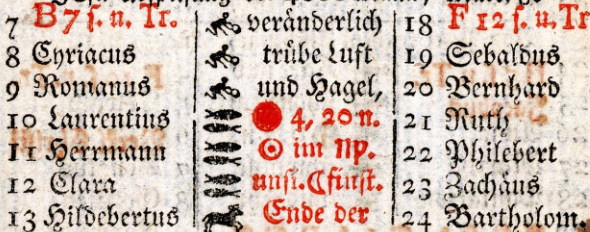 7 B 7 s. n. Tr. veränderlich 18 F 12 s. n. Tr
8 Cyriacus trübe Luft 19 Sebaldus,
9 Romanus und Hagel, 20 Bernhard
10 Laurentius 4, 20 n. 21 Ruth
11 Herrmann ☉ im ♍. 22 Philebert
12 Clara unsi. ☾finst. 23 Zachäus
13 Hildebertus Ende der 24 Bartholom.